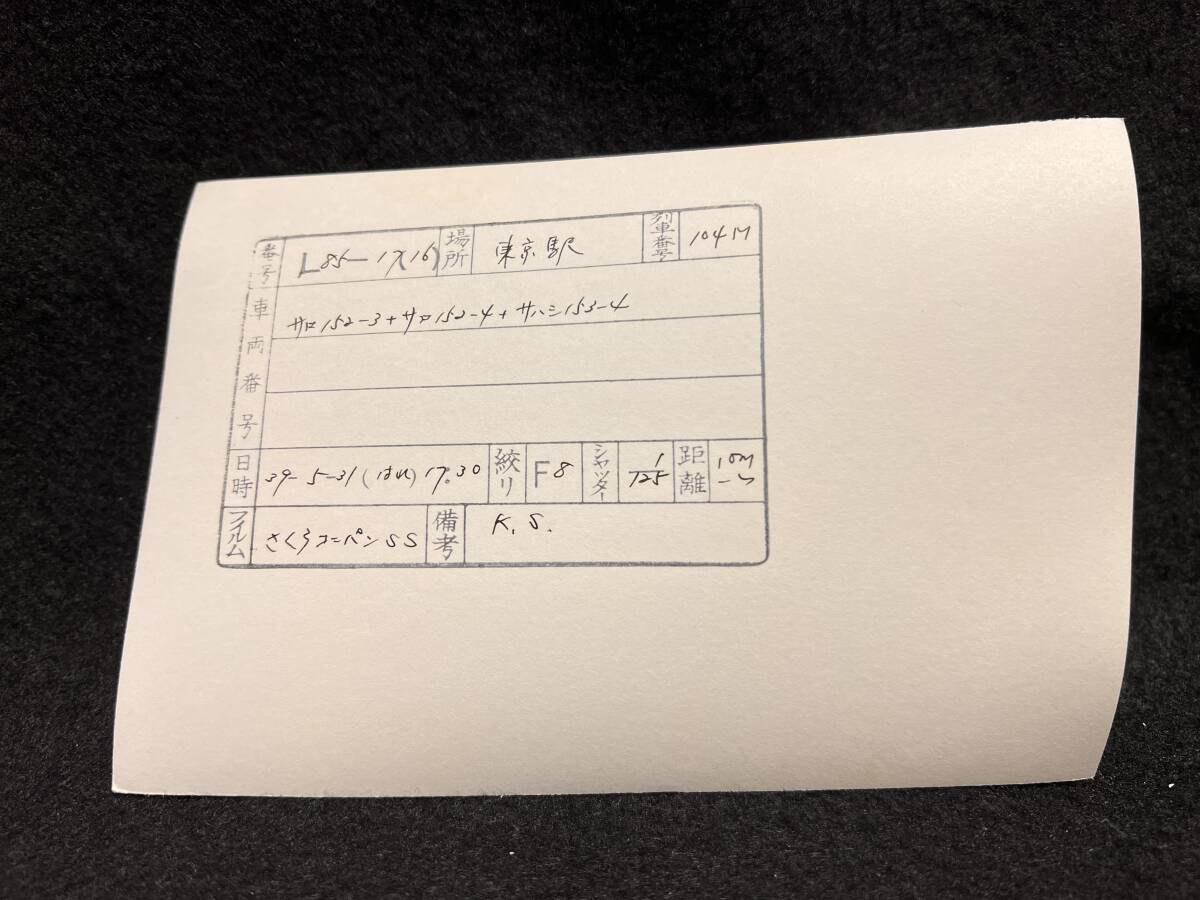 番号 L85-17(16) 場所 東京駅 列車番号 104M
車両番号 サロ152-3+サロ152-4+サハシ153-4
日時 39-5-31(はれ)17:30 絞り F8 シャッター 1/125 距離 10M
フイルム さくらコニパンSS 備考 K.S.